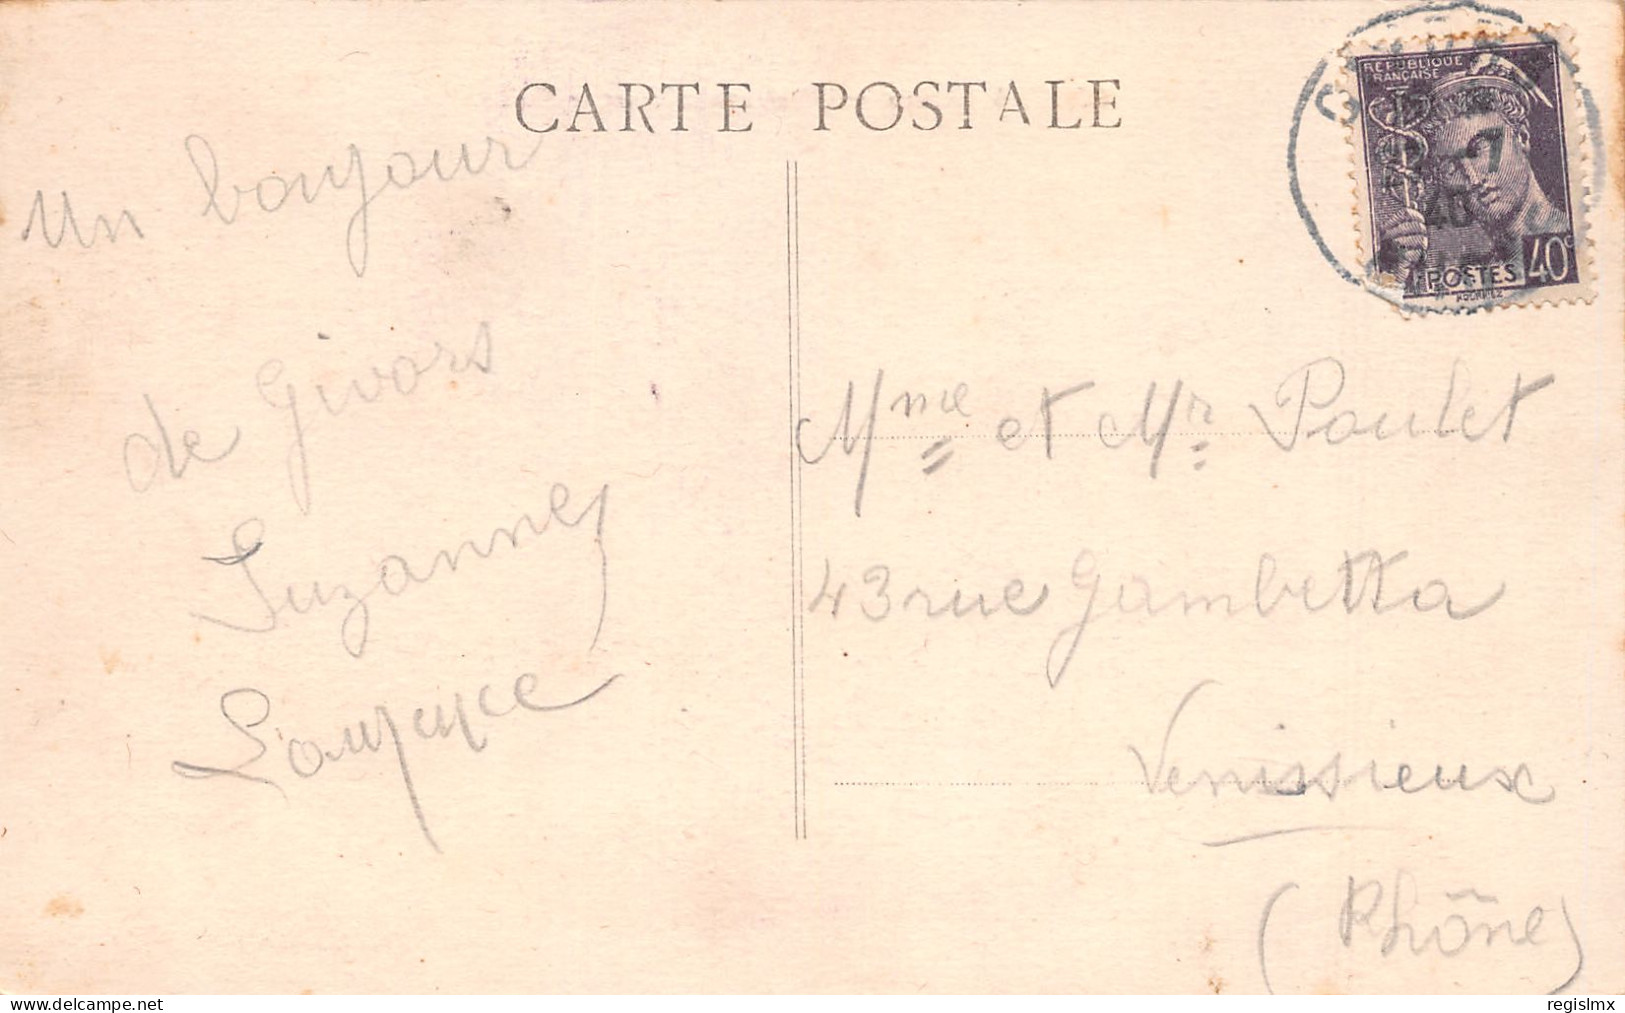 CARTE POSTALE
Un bonjour
de Givors
Suzanne
RÉPUBLIQUE
FRANÇAISE
7
40
POSTES 40c
Mme et Mr Poulet
43 rue Gambetta
Venissieux
(Rhône)
www.delcampe.net
regislmx